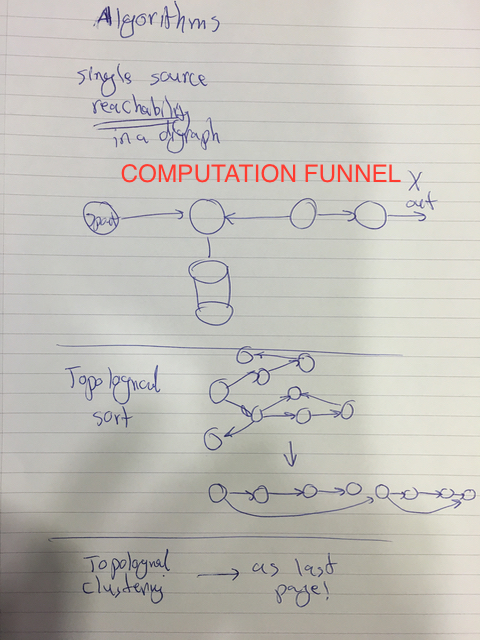 Algorithms
single source
reachability
in a digraph
COMPUTATION FUNNEL
X
out
Topological
sort
Topological
clustering → as last
page!